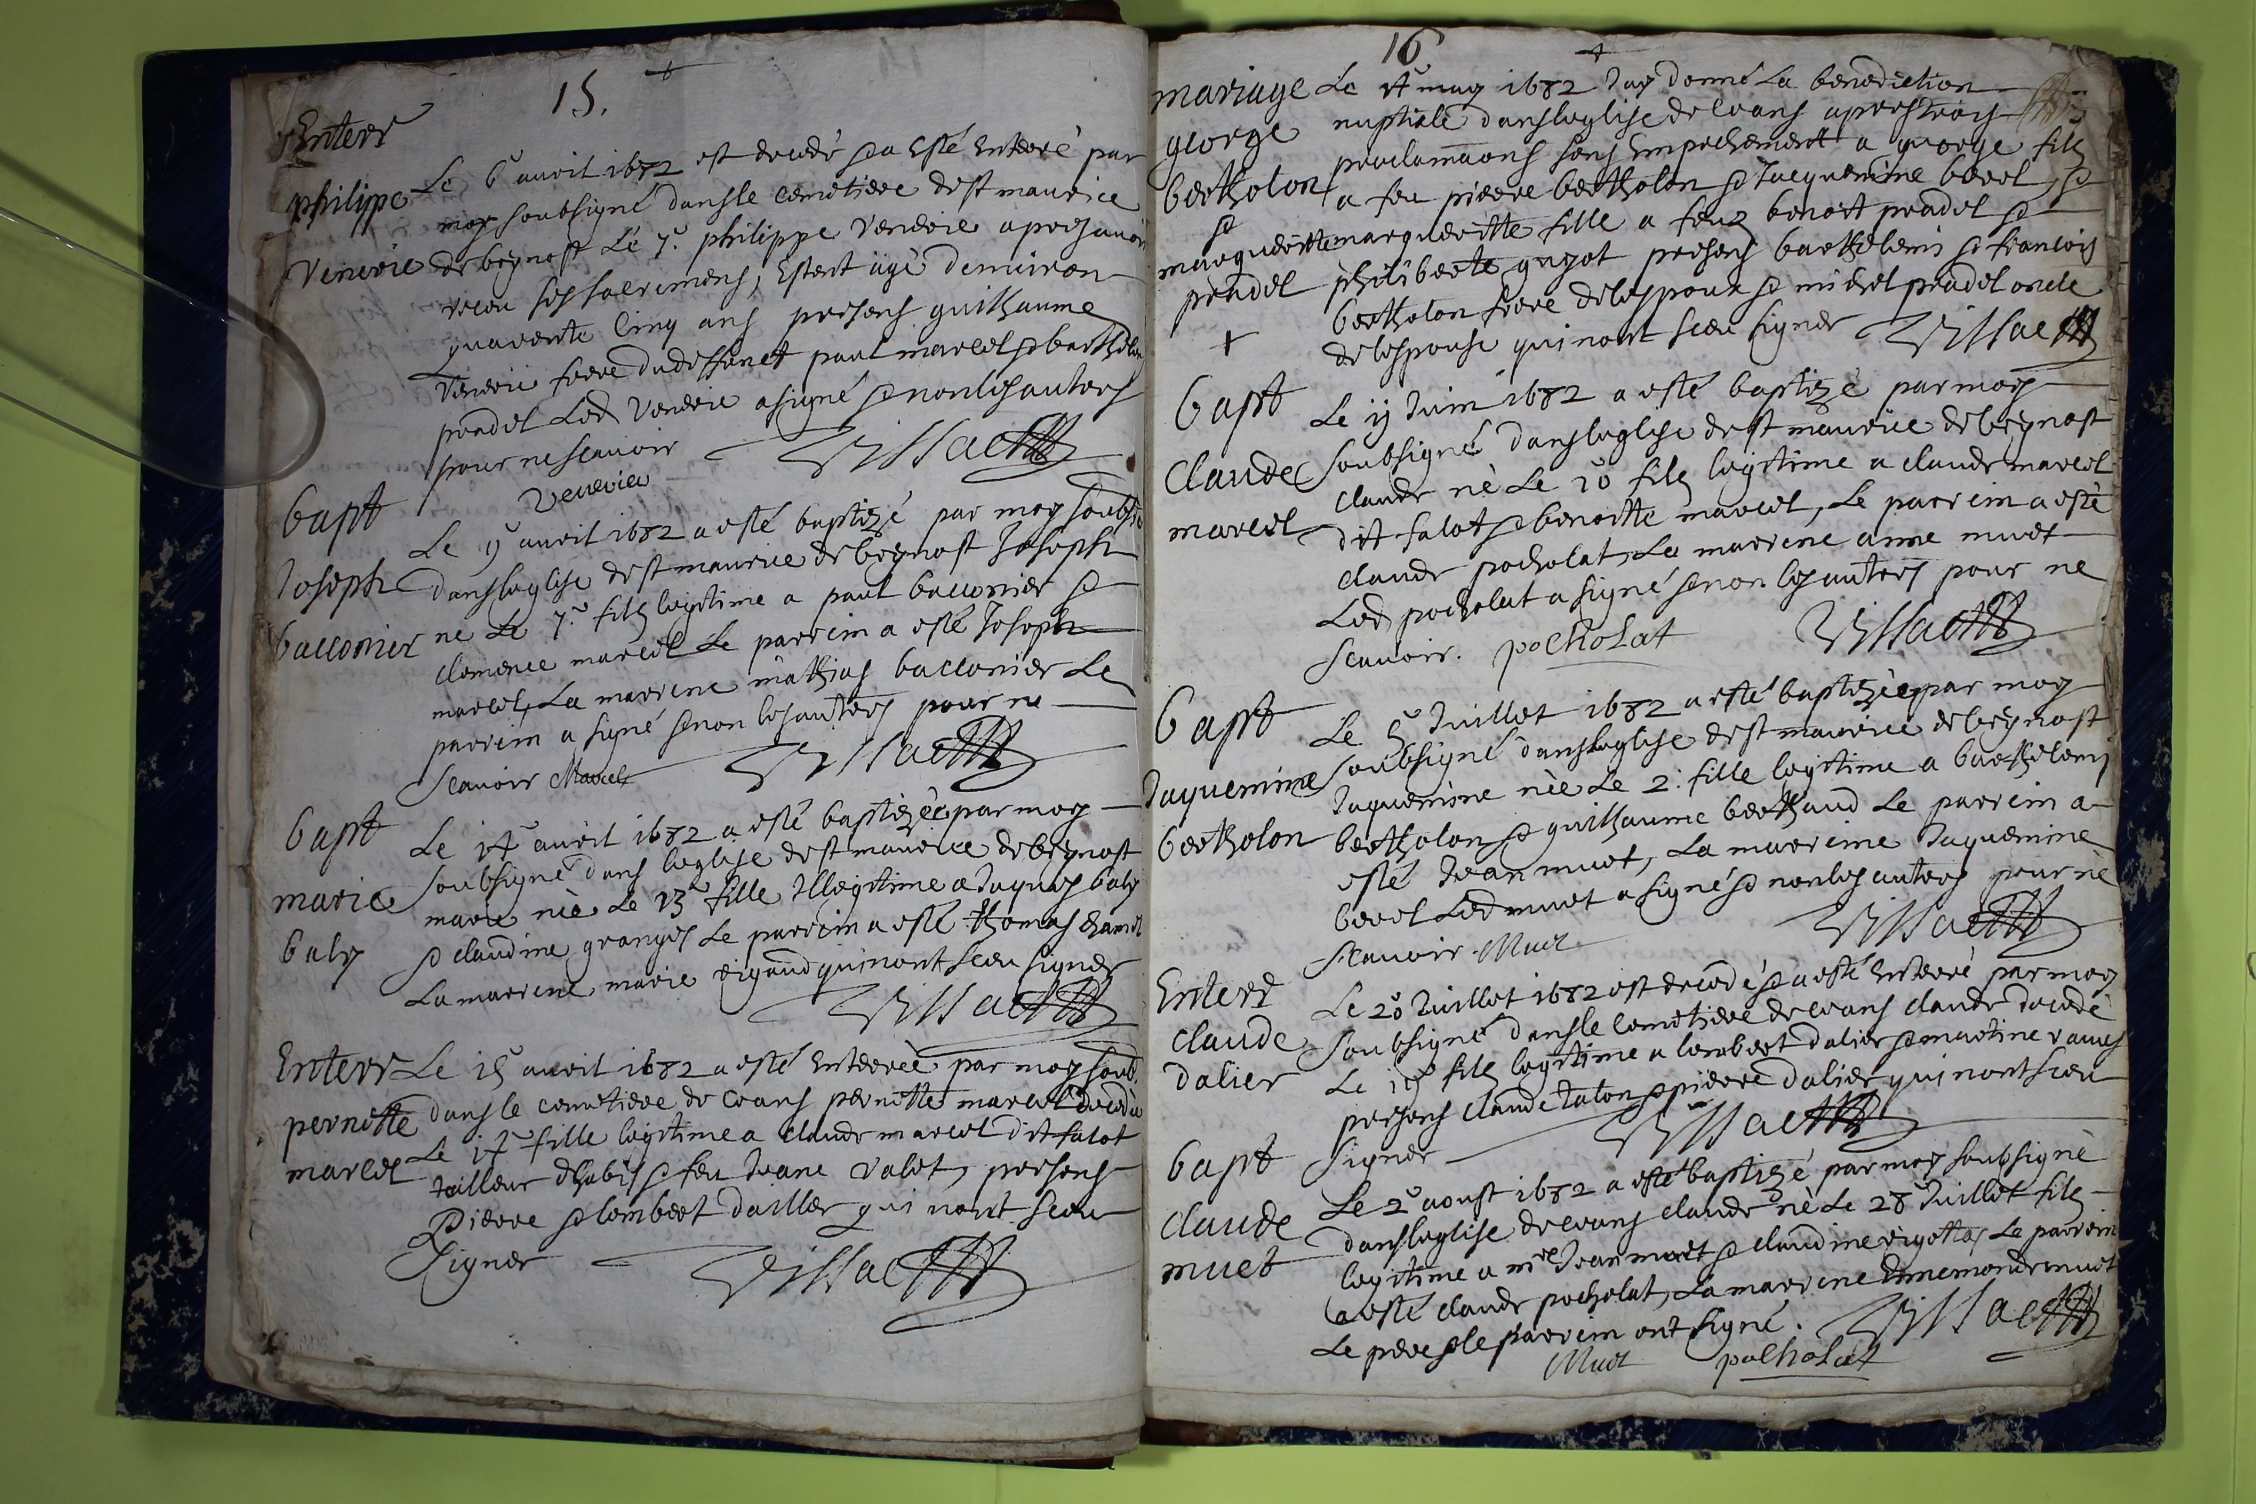 15.
Enterr
philippe
Venerie
Le 6e auril 1682 est decedé & a Esté Enterré par
moy soubsigné dans le cemetiere de st maurice
de beynost Le 7e. philippe Venerie apres auoir
receu ses sacremens, Estant âgé denuiron
quarente Cinq ans presens guilhaume
Venerie frere dudeffunct paul marcel & barthelemi
pradel Led Venerie a signé & non les autres
pour ne scauoir
Venerier
Vissac
bapt
Joseph
bacconier
Le 9e auril 1682 a esté baptizé par moy soubsig
dans leglise de st maurice de beynost Joseph
né Le 7e. filz legitime a paul bacconier &
clemence marcel Le parrein a esté Joseph
marcel, La marrene mathias bacconier Le
parrein a signé & non les autres pour ne
scauoir Marcel
Vissac
bapt
marie
baly
Le 14e auril 1682 a esté baptizée par moy
soubsigné dans leglise de st maurice de beynost
marie née Le 13e fille Illegitime a Jaques baly
& claudine granges Le parrein a esté thomas chamel
La marrene marie rigaud qui nont sceu signer
Vissac
Enterr
pernette
marcel
Le 15e auril 1682 a esté Enterrée par moy soub.
dans le cemetiere de Crans pernette marcel decedée
Le 14e fille legitime a claude marcel dit falot
tailleur dhabis & feu Jeane Valet, presens
pierre & lembert dallier qui nont sceu
signer
Vissac
16
mariage
george
bertholon
&
marguerite
pradel
+
Le 4e may 1682 Jay donné La benediction
nuptiale dans leglise de Crans apres trois
proclamaons sans Empechement a george filz
a feu pierre bertholon & Jaquemine borel, &
marguerite fille a feuz benoit pradel &
philiberte guyot presens barthelemi & francois
bertholon frere de lespoux & michel pradel oncle
de lespouse qui nont sceu signer Vissac
bapt
Claude
marcel
Le 11 Juin 1682 a esté baptizé par moy
soubsigné dans leglise de st maurice de beynost
claude né Le 10 filz legitime a claude marcel
dit falot & benoitte marcel, Le parrein a esté
claude pocholat, La marrene anne muet
Led pocholat a signé & non les autres pour ne
scauoir. pocholat Vissac
bapt
Jaquemine
bertholon
Le 5e Juillet 1682 a esté baptizée par moy
soubsigné dans leglise de st maurice de beynost
Jaquemine née Le 2. fille legitime a barthelemi
bertholon & guilhaume berthaud Le parrein a
esté Jean muet, La marreine Jaquemine
borel Led muet a signé & non les autres pour ne
scauoir Muet Vissac
Enterr
claude
dalier
Le 20 Juillet 1682 est decedé & a esté Enterré par moy
soubsigné dans le Cemetiere de Crans claude decedé
Le 19e filz legitime a lembert dalier & martine
presens claude & pierre dalier qui nont sceu
signer
Vissac
bapt
claude
muet
Le 2e aoust 1682 a esté baptizé par moy soubsigné
dans leglise de Crans claude né Le 28e Juillet filz
legitime a mre Jean muet & claudine rigottas Le parrein
a esté claude pocholat, La marrene Emmemonde muet
Le pere & le parrein ont signé. Vissac
Muet pocholat